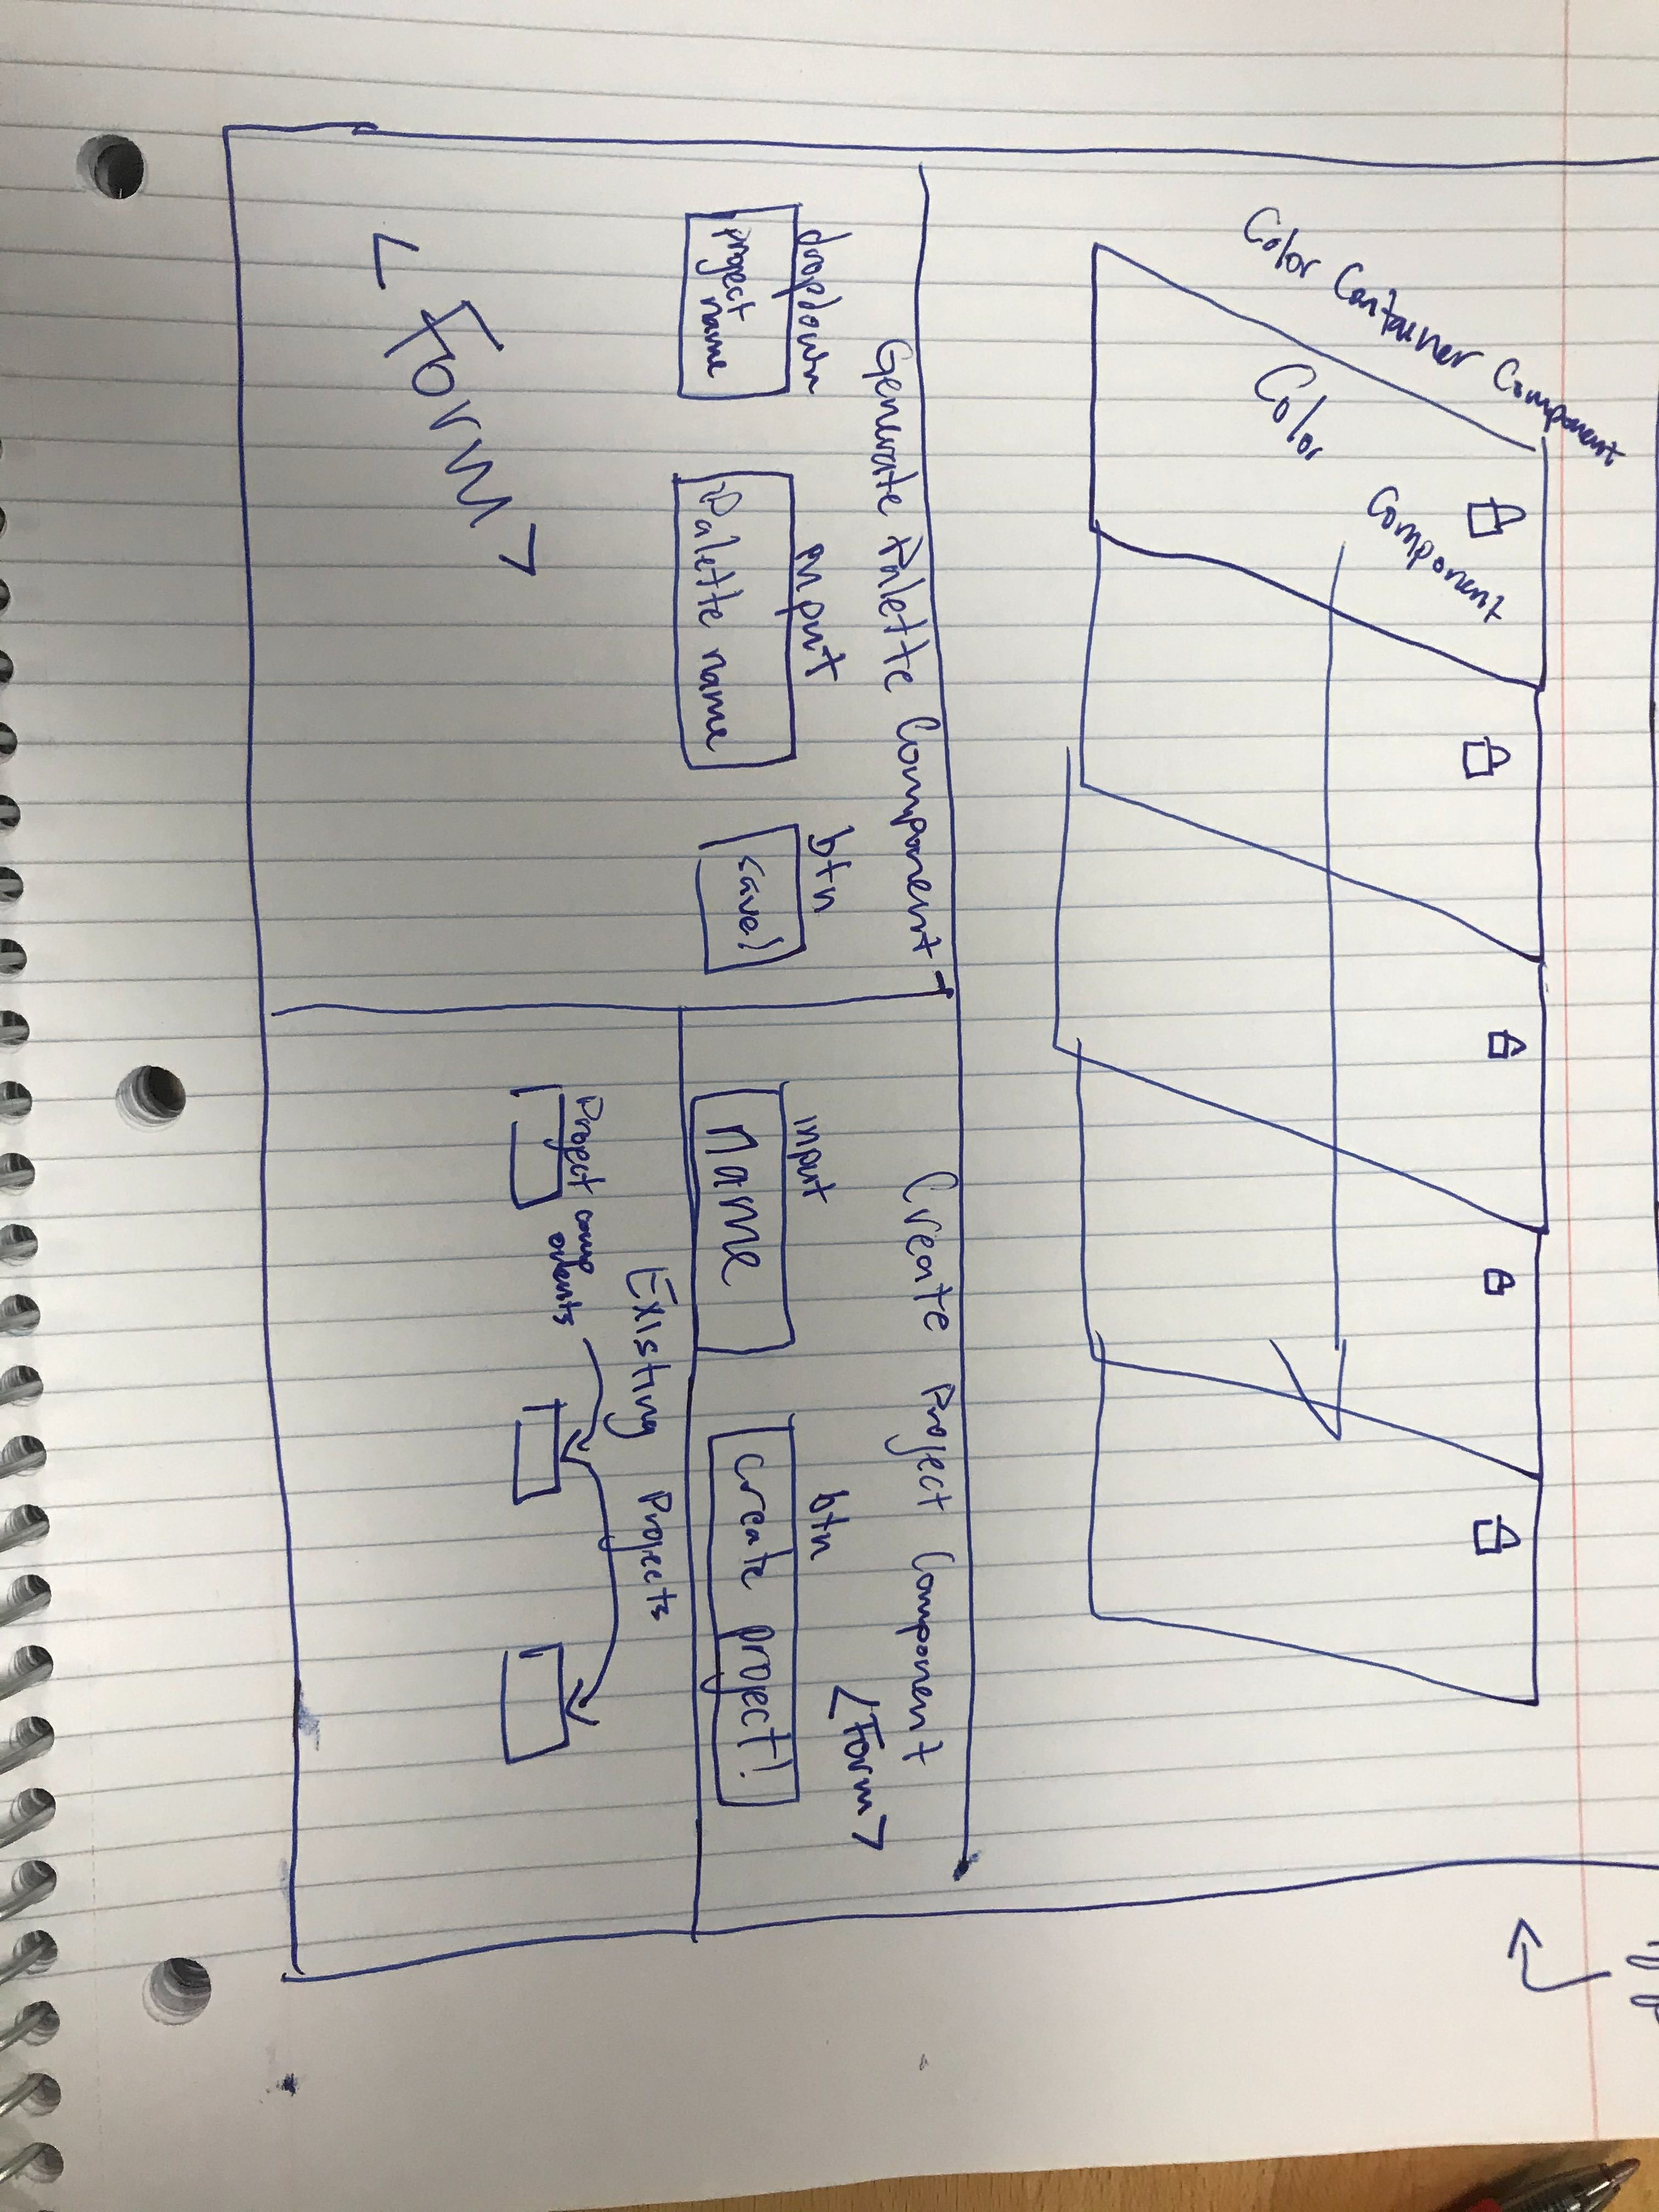 Color Container Component
Color
Component
Generate Palette Component
dropdown
project name
input
Palette name
btn
save!
<Form>
Create Project Component
<Form>
input
name
btn
Create project!
Existing Projects
Project